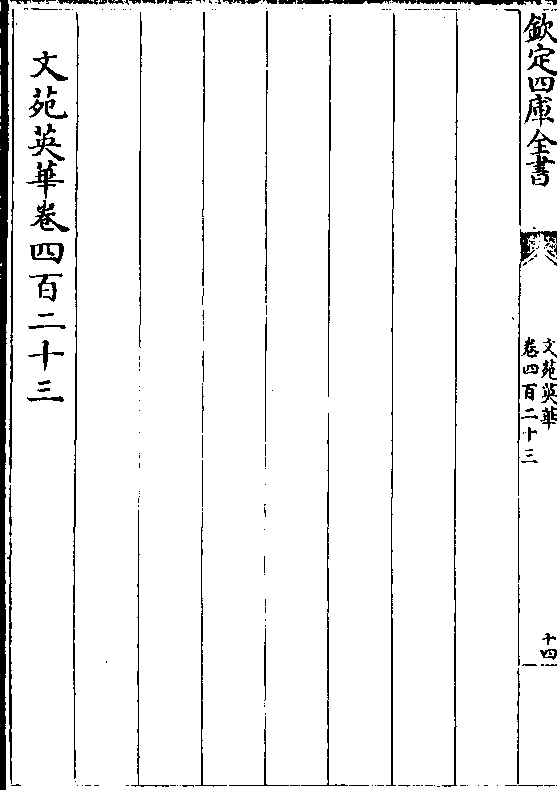 欽定四庫全書
文苑英華
卷四百二十三
十四
文苑英華卷四百二十三